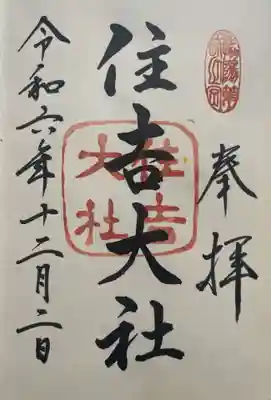 奉拝
住吉大社
住吉大社
令和六年十二月二日